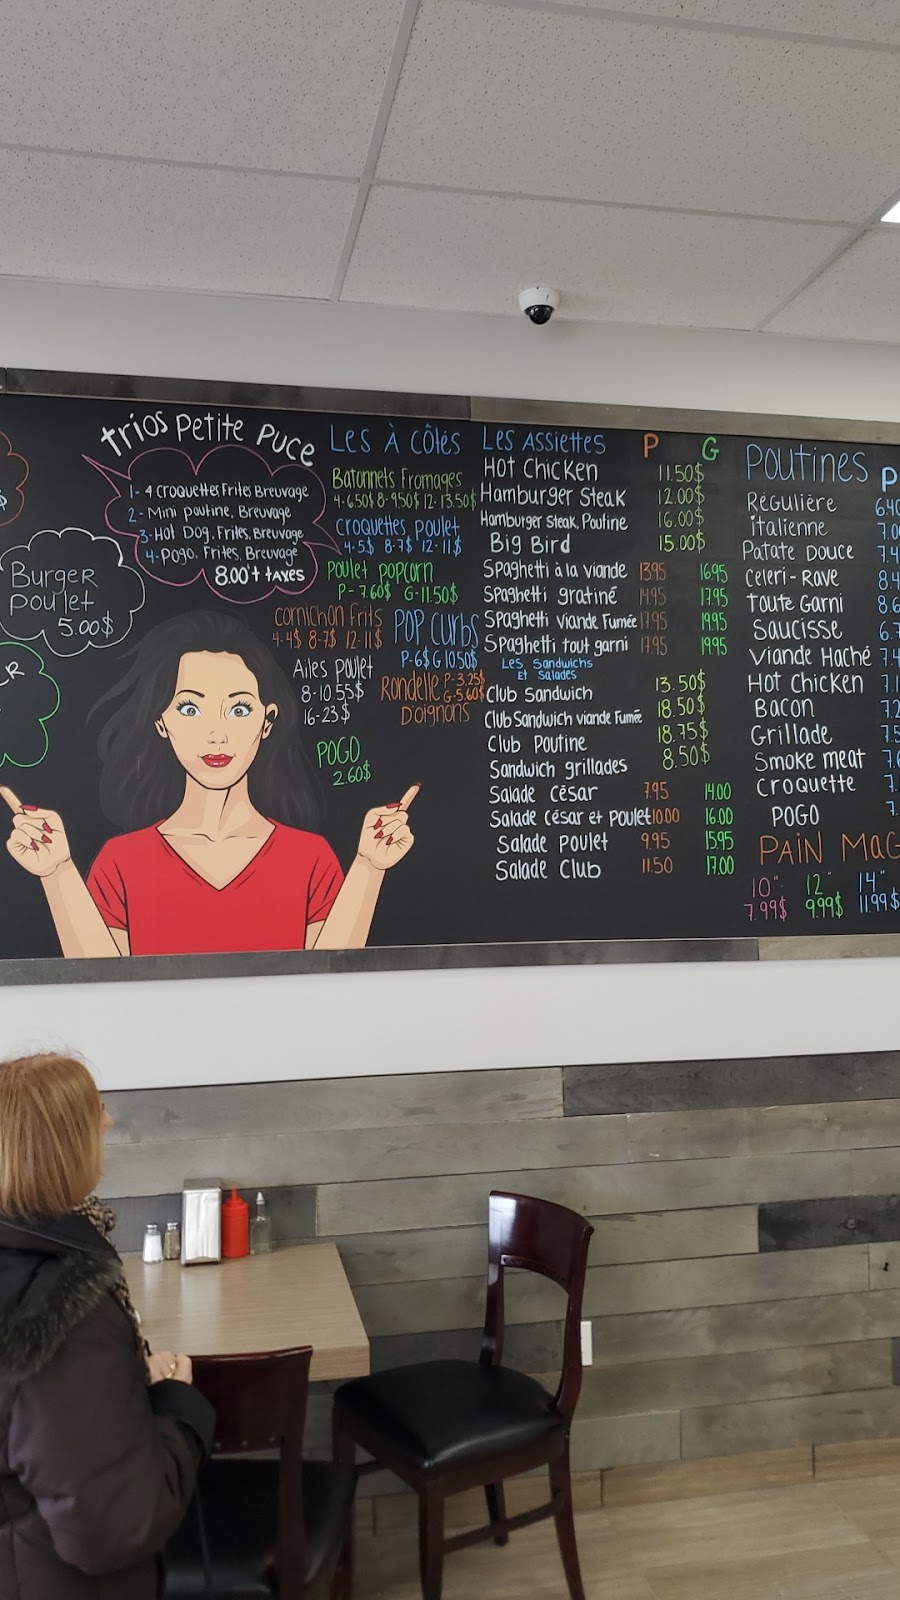 $
Burger
Poulet
5.00$
ER
trios Petite Puce
1- 4 croquettes Frites Breuvage
2- Mini poutine, Breuvage
3- Hot Dog, Frites, Breuvage
4- Pogo, Frites, Breuvage
8.00$ + taxes
Les À Côtés
Batonnets Fromages
4-6.50$ 8-9.50$ 12-13.50$
croquettes poulet
4-5$ 8-7$ 12-11$
Poulet popcorn
P-7.60$ G-11.50$
cornichon frits
4-4$ 8-7$ 12-11$
POP CURBS
P-6$ G 10.50$
Ailes poulet
8-10.55$
16-23$
Rondelle P-3.25$
G-5.60$
D'oignons
POGO
2.60$
Les Assiettes P G
Hot Chicken 11.50$
Hamburger Steak 12.00$
Hamburger Steak, Poutine 16.00$
Big Bird 15.00$
Spaghetti à la viande 13.95 16.95
Spaghetti gratiné 14.95 17.95
Spaghetti Viande Fumée 17.95 19.95
Spaghetti tout garni 17.95 19.95
Les Sandwichs
Et Salades
Club Sandwich 13.50$
Club Sandwich viande Fumé 18.50$
Club Poutine 18.75$
Sandwich grillades 8.50$
Salade César 7.95 14.00
Salade César et Poulet 10.00 16.00
Salade Poulet 9.95 15.95
Salade Club 11.50 17.00
Poutines P
Régulière 6.40
italienne 7.0
Patate Douce 7.4
Céleri-Rave 8.4
Toute Garni 8.6
Saucisse 6.7
Viande Haché 7.4
Hot Chicken 7.1
Bacon 7.2
Grillade 7.5
Smoke meat 7.6
Croquette 7.
POGO 7.
PAIN MAG
10" 12" 14"
7.99$ 9.99$ 11.99$